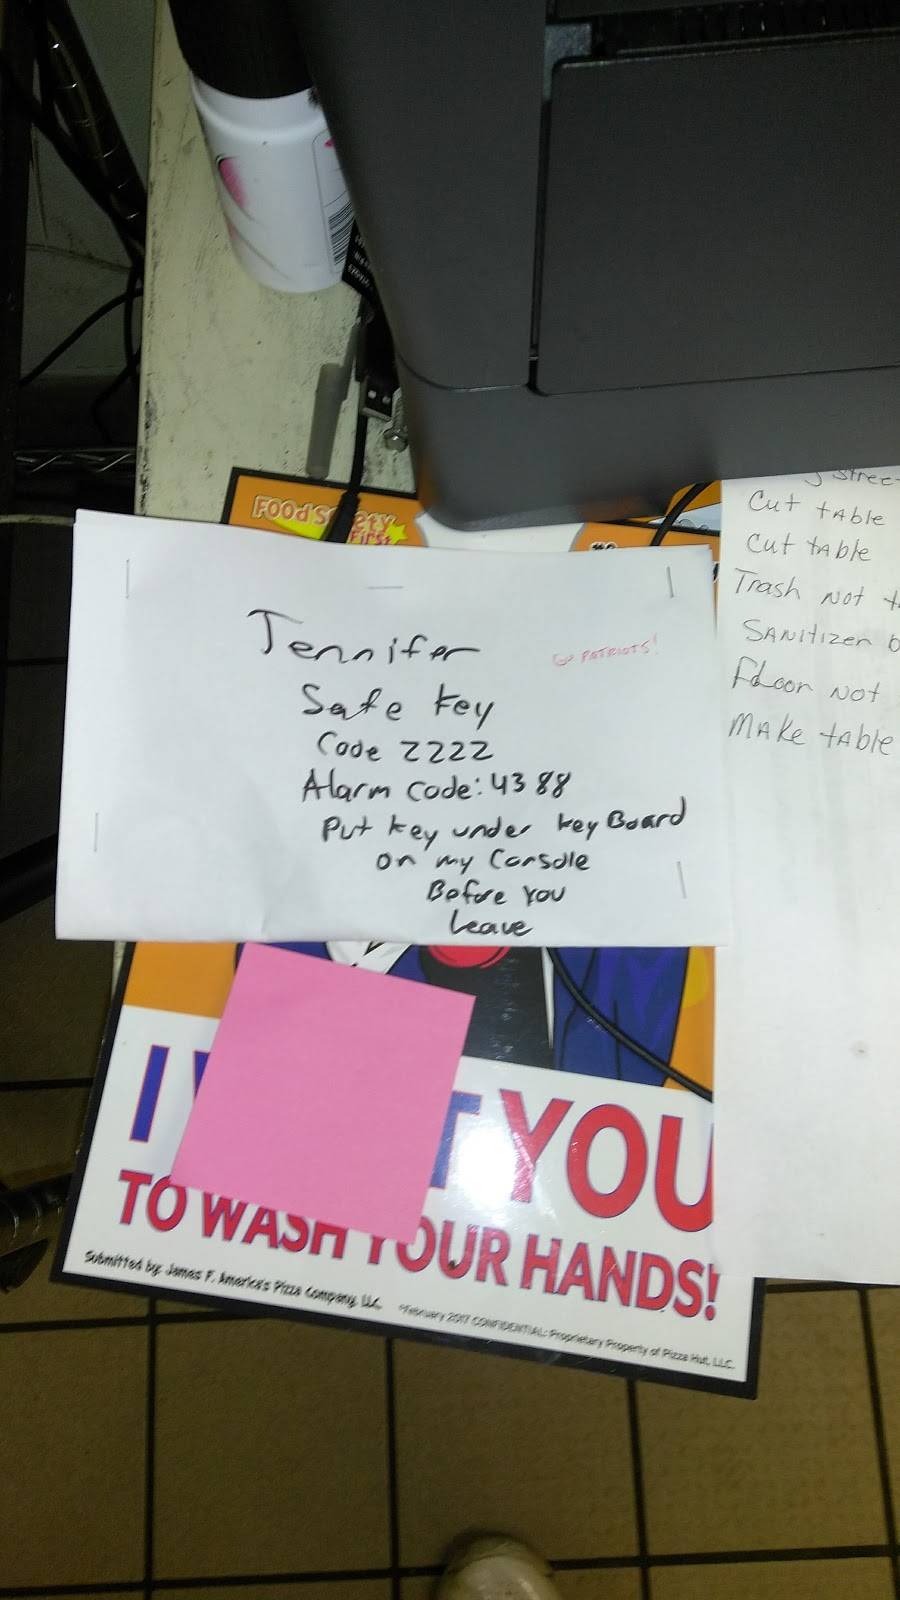 FOOd S ety
First
Jennifer
GO PATRIOTS!
Safe key
Code 2222
Alarm code: 4388
Put key under keyBoard
on my Console
Before You
Leave
Cut tABle
Cut tABle
Trash Not
SANitizer
Floor Not
MAKe tABle
I YOU
TO WASH YOUR HANDS!
Submitted by: James F. America's Pizza Company, LLC
©February 2017 CONFIDENTIAL: Proprietary Property of Pizza Hut, LLC.